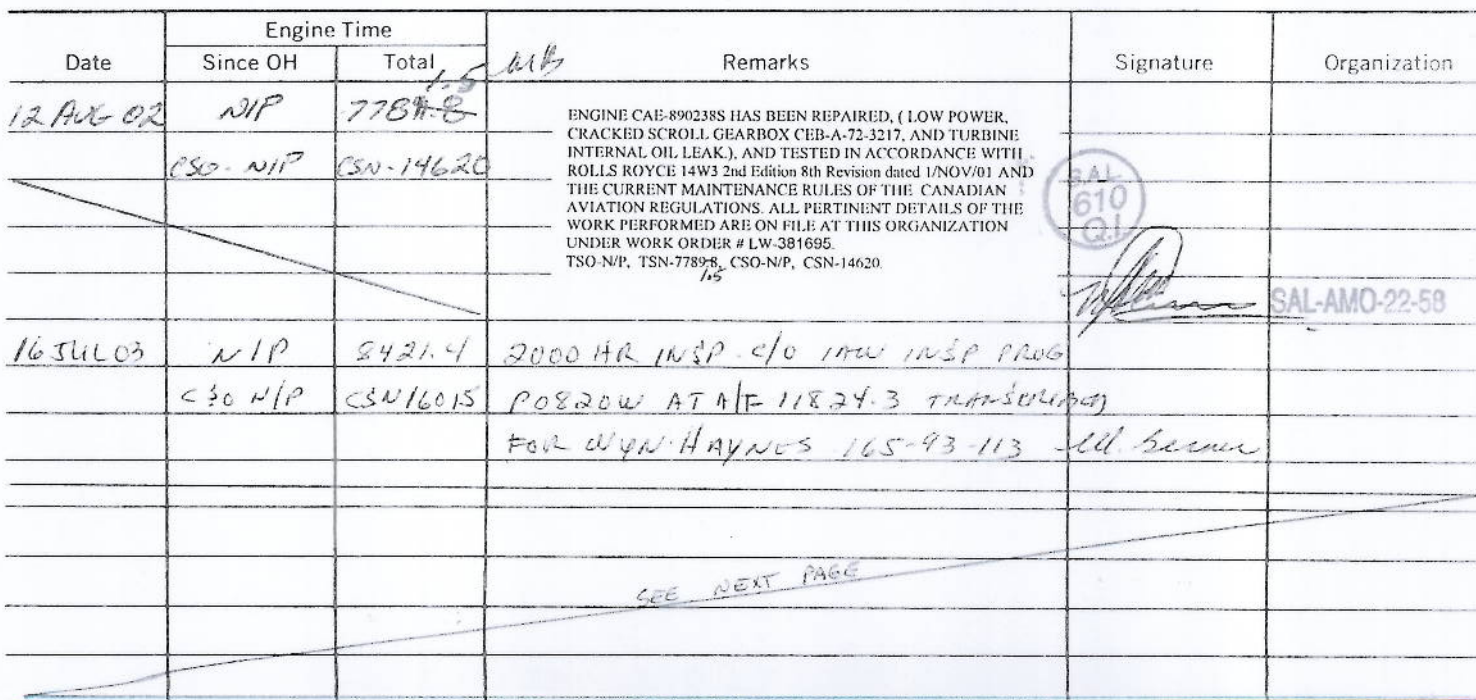 Engine Time
Date Since OH Total Remarks Signature Organization
1.5
12 AUG 02 N/P 778
CSO-N/P CSN-14620
ENGINE CAE-890238S HAS BEEN REPAIRED, ( LOW POWER,
CRACKED SCROLL GEARBOX CEB-A-72-3217, AND TURBINE
INTERNAL OIL LEAK.), AND TESTED IN ACCORDANCE WITH
ROLLS ROYCE 14W3 2nd Edition 8th Revision dated 1/NOV/01 AND
THE CURRENT MAINTENANCE RULES OF THE CANADIAN
AVIATION REGULATIONS. ALL PERTINENT DETAILS OF THE
WORK PERFORMED ARE ON FILE AT THIS ORGANIZATION
UNDER WORK ORDER # LW-381695.
TSO-N/P, TSN-7789.8, CSO-N/P, CSN-14620.
1.5
S.A.L
610
Q.I.
SAL-AMO-22-58
16 JUL 03 N/P 8421.4 2000 HR INSP C/O IAW INSP PROG
CSO N/P CSN16015 P0820W AT A/F 11824.3 TRANSCRIBED
FOR WYN HAYNES 165-93-113
SEE NEXT PAGE